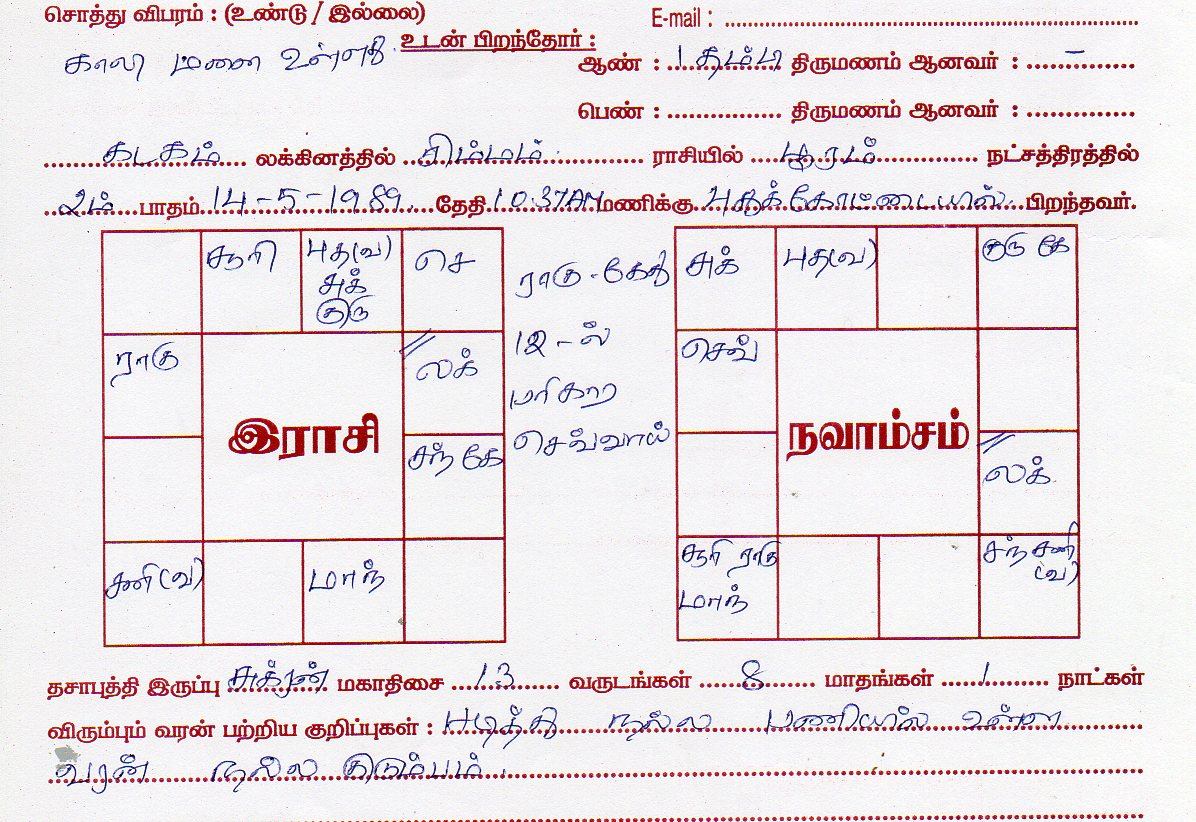 சொத்து விபரம் : (உண்டு / இல்லை)
E-mail :
காலி மனை உள்ளது.
உடன் பிறந்தோர் :
ஆண் : 1 தம்பி திருமணம் ஆனவர் : –
பெண் : திருமணம் ஆனவர் :
கடகம் லக்கினத்தில் சிம்மம் ராசியில் பூரம் நட்சத்திரத்தில்
2ம் பாதம் 14-5-1989 தேதி 10.37AM மணிக்கு புதுக்கோட்டையில் பிறந்தவர்.
சூரி
புத(வ)
சுக்
குரு
செ
ராகு
லக்
இராசி
சந் கே
சனி(வ)
மாந்
ராகு-கேது
12-ல்
பரிகார
செவ்வாய்
சுக்
புத(வ)
குரு கே
செவ்
நவாம்சம்
லக்
சூரி ராகு
மாந்
சந் சனி
(வ)
தசாபுத்தி இருப்பு சுக்ரன் மகாதிசை 13 வருடங்கள் 8 மாதங்கள் 1 நாட்கள்
விரும்பும் வரன் பற்றிய குறிப்புகள் : படித்து நல்ல பணியில் உள்ள
வரன் நல்ல குடும்பம்.